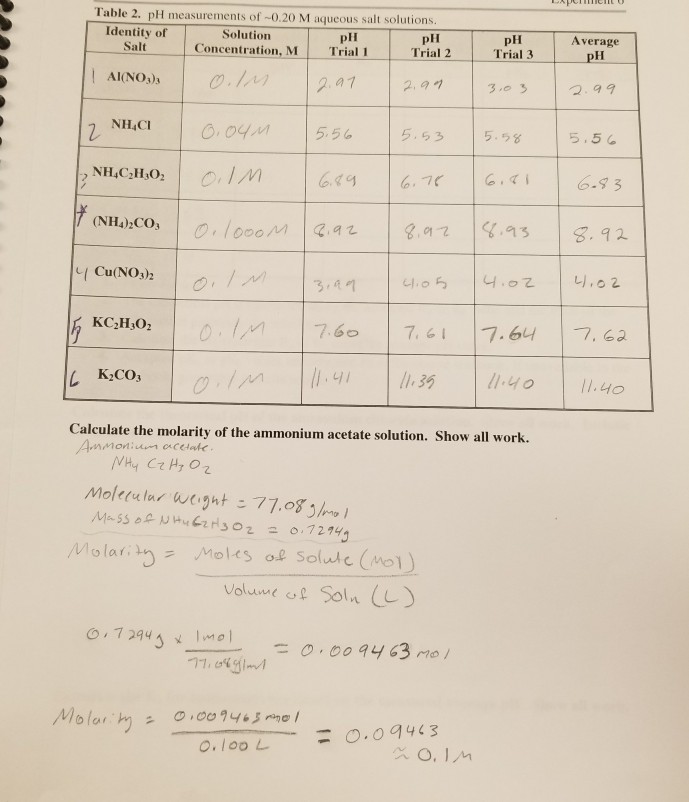 Table 2. pH measurements of ~0.20 M aqueous salt solutions.
Identity of Salt | Solution Concentration, M | pH Trial 1 | pH Trial 2 | pH Trial 3 | Average pH
1 Al(NO₃)₃ | 0.1M | 2.97 | 2.97 | 3.03 | 2.99
2 NH₄Cl | 0.04M | 5.56 | 5.53 | 5.58 | 5.56
3 NH₄C₂H₃O₂ | 0.1M | 6.89 | 6.78 | 6.81 | 6.83
* (NH₄)₂CO₃ | 0.1000M | 8.92 | 8.92 | 8.93 | 8.92
4 Cu(NO₃)₂ | 0.1M | 3.99 | 4.05 | 4.02 | 4.02
5 KC₂H₃O₂ | 0.1M | 7.60 | 7.61 | 7.64 | 7.62
6 K₂CO₃ | 0.1M | 11.41 | 11.39 | 11.40 | 11.40
Calculate the molarity of the ammonium acetate solution. Show all work.
Ammonium acetate.
NH4 C2H3O2
Molecular weight = 77.08g/mol
Mass of NH4C2H3O2 = 0.7294g
Molarity = Moles of Solute (mol)
Volume of Soln (L)
0.7294g x 1mol
77.08g/mol
= 0.009463 mol
Molarity = 0.009463mol
0.100L
= 0.09463
≈ 0.1M